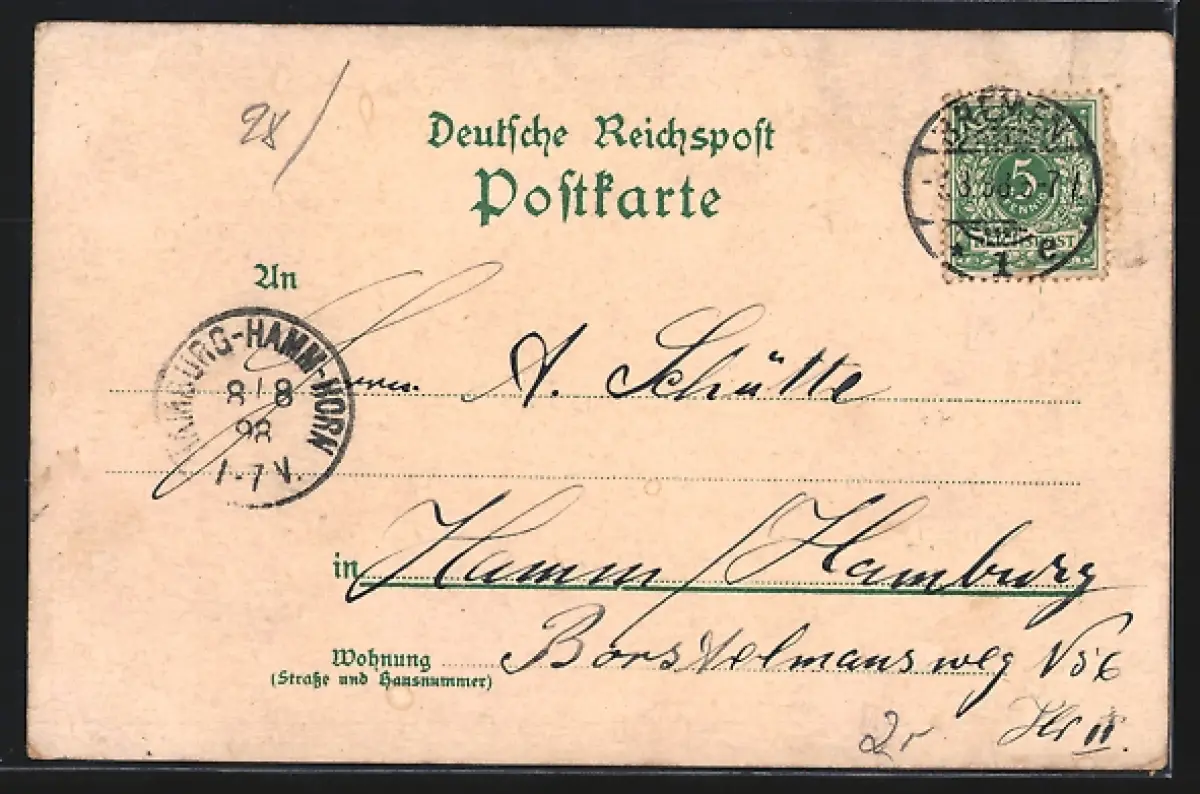 98/
Deutsche Reichspost
Postkarte
BREMEN
5-7
* 1 e
5
PFENNIG
REICHSPOST
An
HAMBURG-HAMM-HORN
8 8
98
1-7 V.
Herrn A. Schütte
in Hamm/Hamburg
Wohnung Borstelmannsweg
(Straße und Hausnummer)
2r
II.